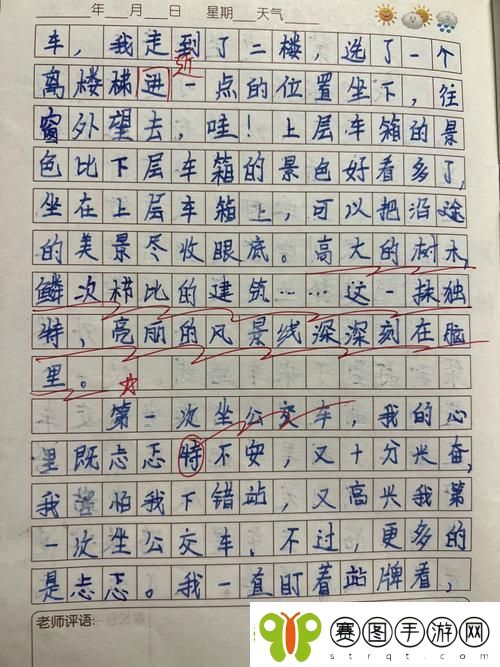 年 月 日 星期 天气
车，我走到了二楼，选了一个
近
离楼梯进一点的位置坐下，往
窗外望去，哇！上层车箱的景
色比下层车箱的景色好看多了，
坐在上层车箱上，可以把沿途
的美景尽收眼底。高大的树木，
鳞次栉比的建筑……这一抹独
特，亮丽的风景线深深刻在脑
里。
第一次坐公交车，我的心
里既忐忑特不安，又十分兴奋，
我怕我下错站，又高兴我第
一次坐公交车，不过，更多的
是忐忑。我一直盯着站牌看，
老师评语：
赛图手游网
strqt.com